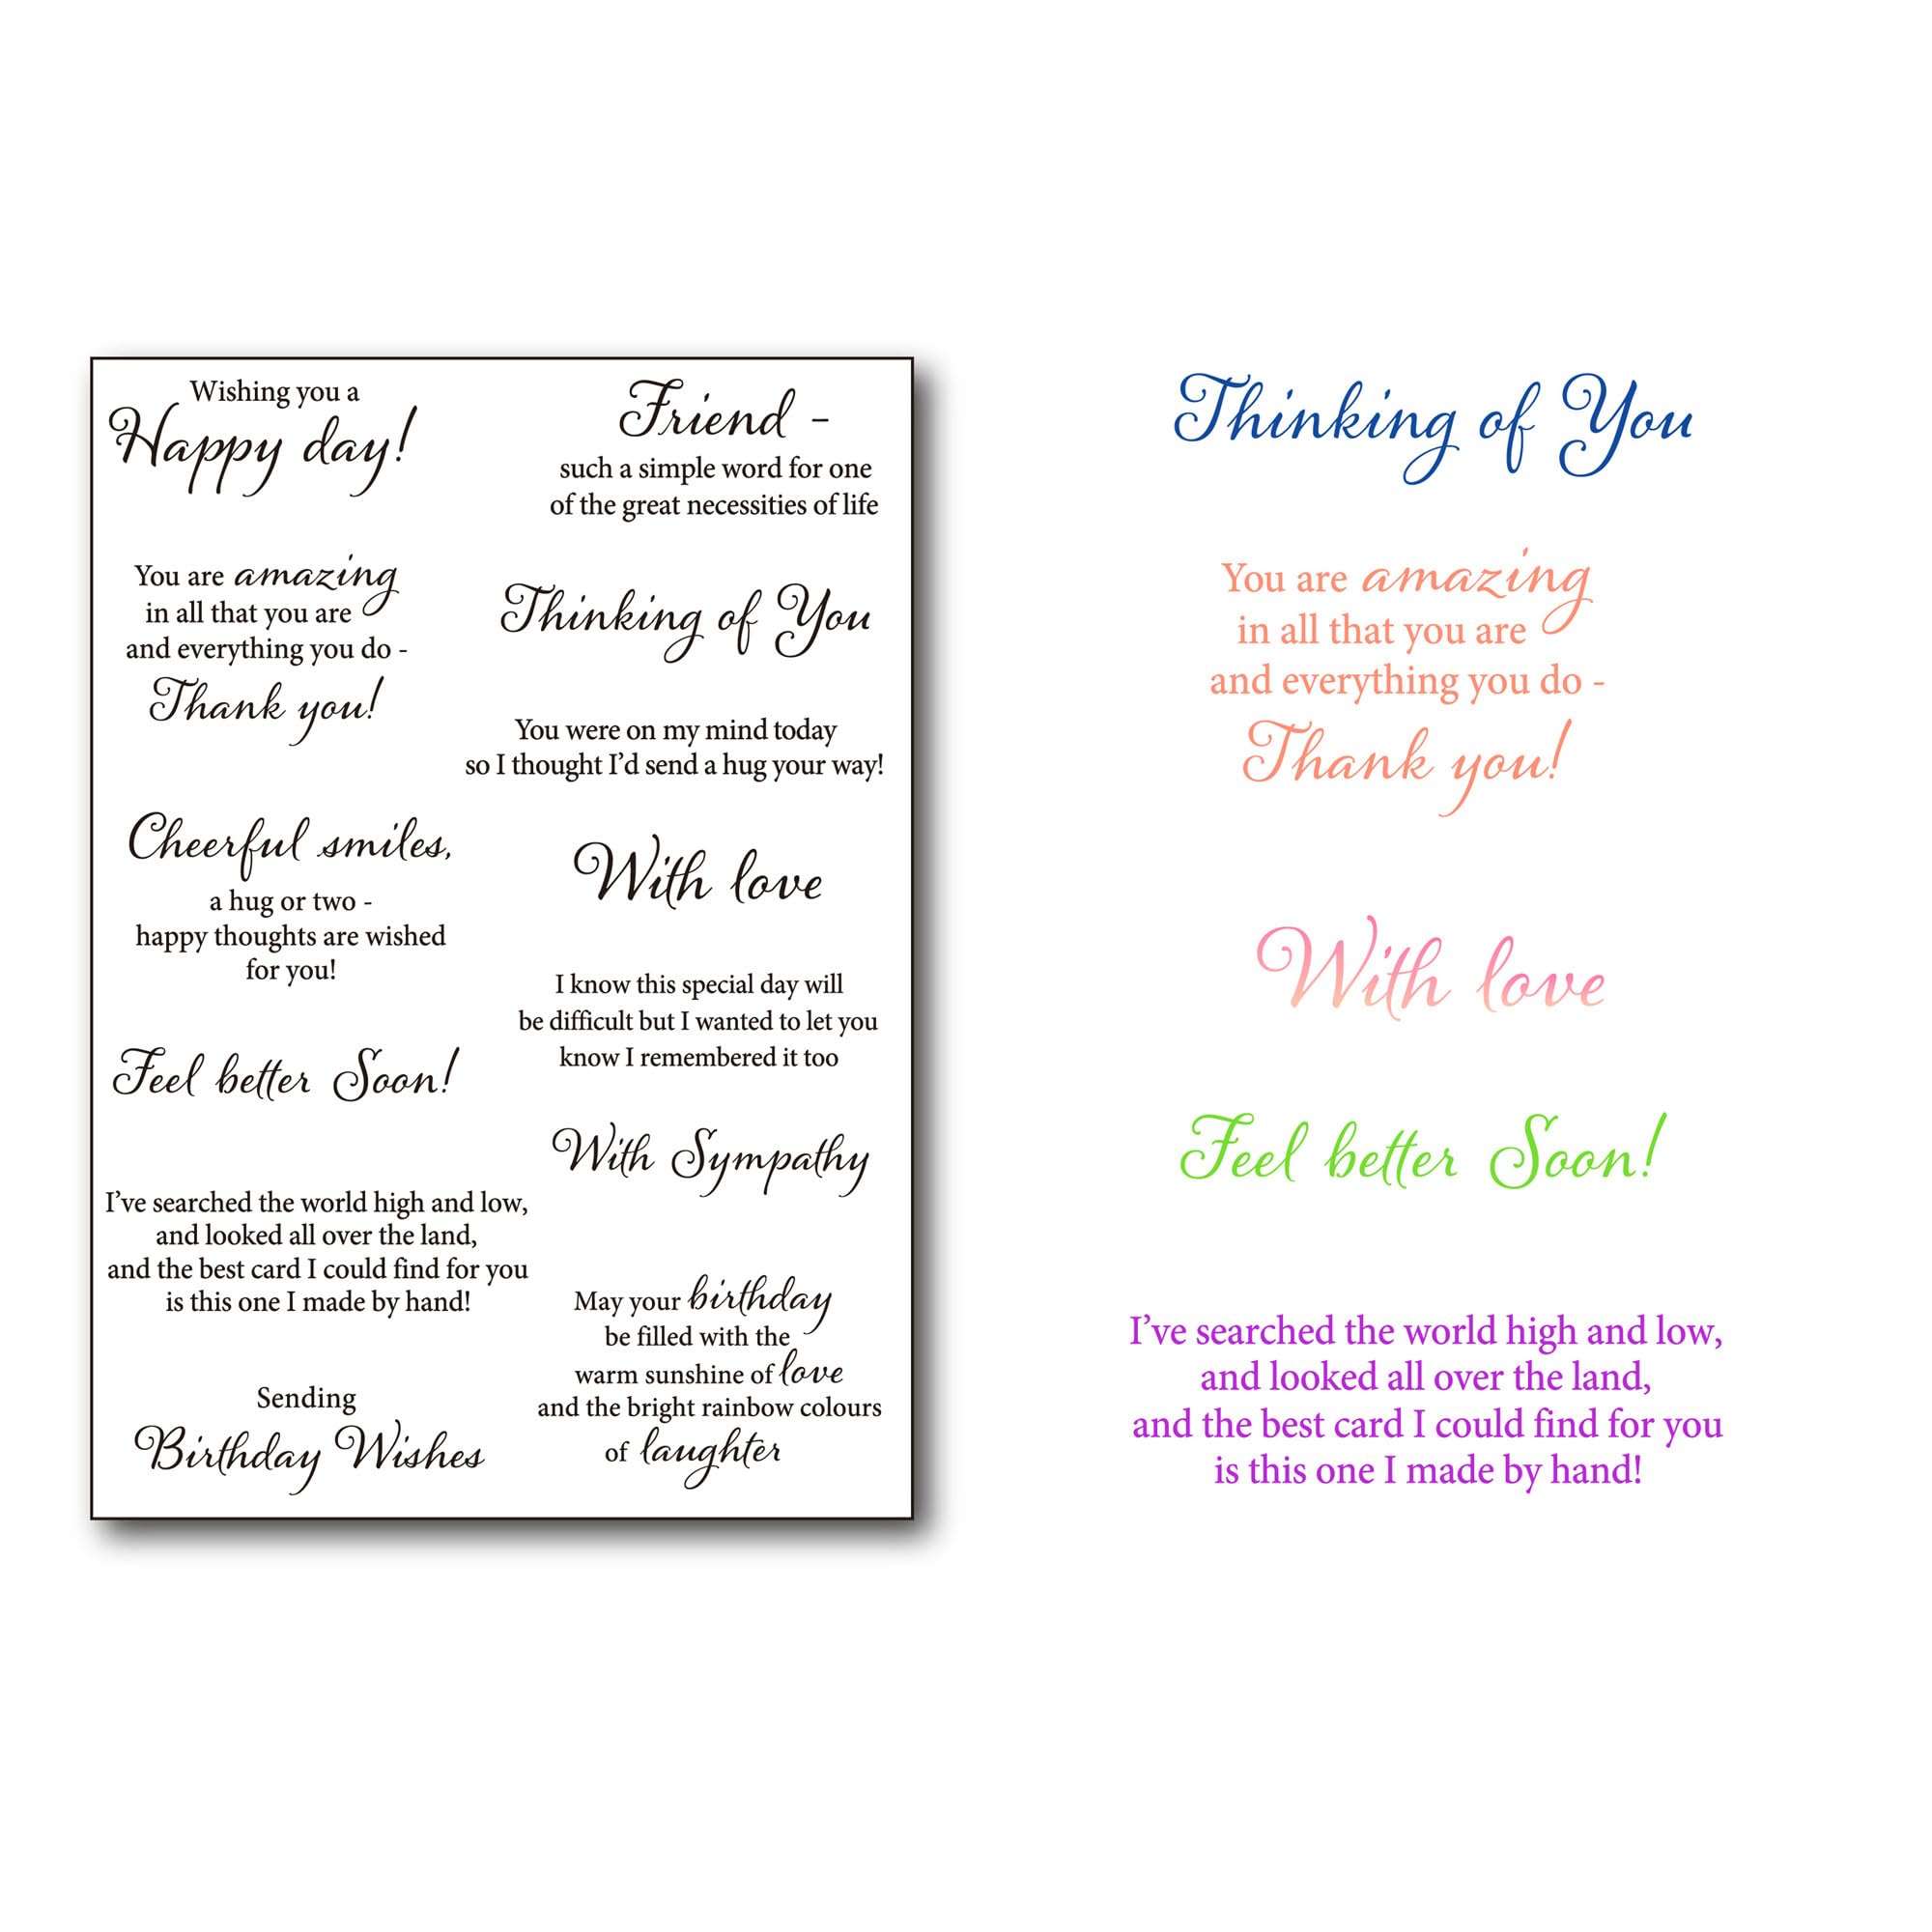 Wishing you a
Happy day!
You are amazing
in all that you are
and everything you do -
Thank you!
Cheerful smiles,
a hug or two -
happy thoughts are wished
for you!
Feel better Soon!
I've searched the world high and low,
and looked all over the land,
and the best card I could find for you
is this one I made by hand!
Sending
Birthday Wishes
Friend -
such a simple word for one
of the great necessities of life
Thinking of You
You were on my mind today
so I thought I'd send a hug your way!
With love
I know this special day will
be difficult but I wanted to let you
know I remembered it too
With Sympathy
May your birthday
be filled with the
warm sunshine of love
and the bright rainbow colours
of laughter
Thinking of You
You are amazing
in all that you are
and everything you do -
Thank you!
With love
Feel better Soon!
I've searched the world high and low,
and looked all over the land,
and the best card I could find for you
is this one I made by hand!